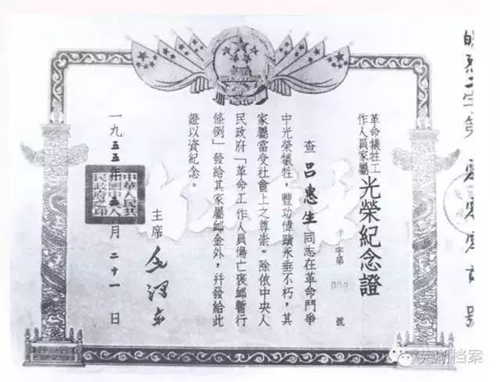 革命犧牲工
作人員家屬
光榮紀念證
字第 號
查呂惠生同志在革命鬥爭
中光榮犧牲，豐功偉蹟永垂不朽，其
家屬當受社會上之尊崇。除依中央人
民政府「革命工作人員傷亡褒卹暫行
條例」發給其家屬卹金外，幷發給此
證以資紀念。
主席 毛澤东
一九五五年 月二十一日
中華人民共
芜湖档案